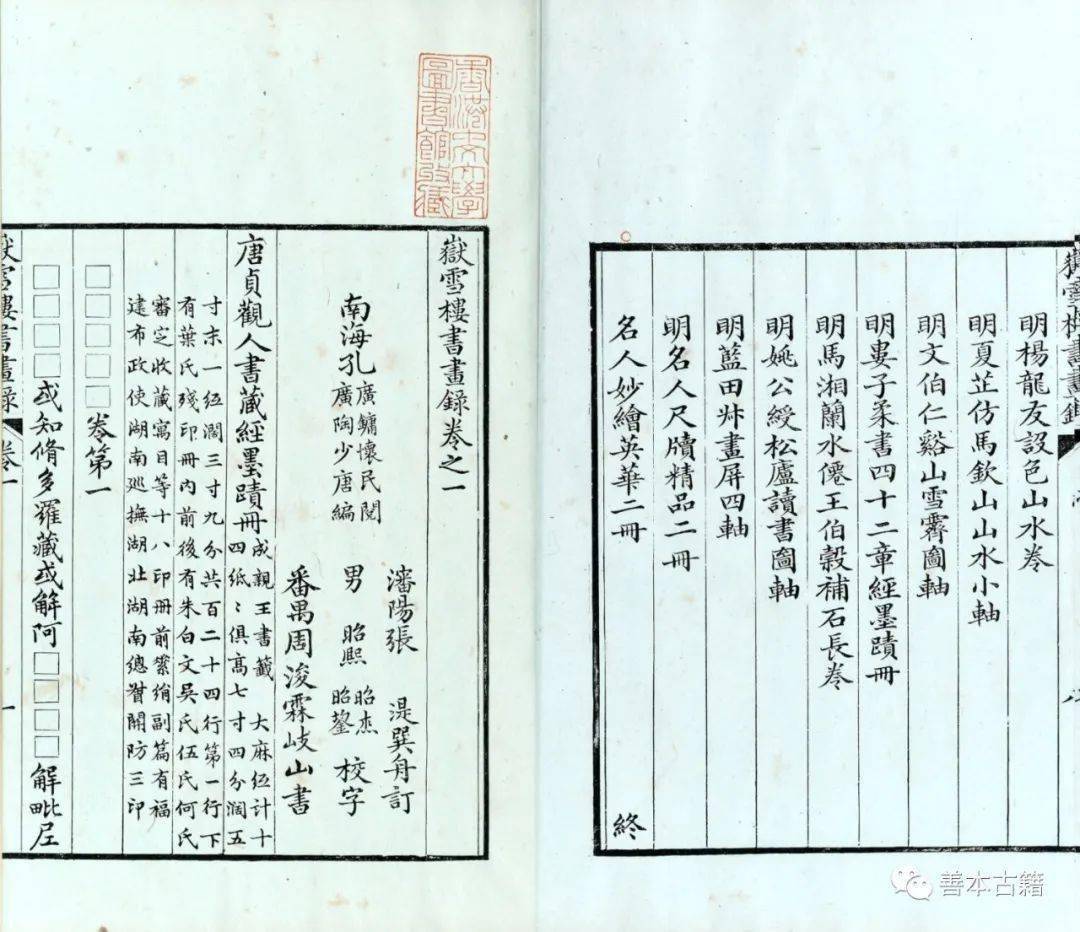 嶽雪樓書畫錄
明楊龍友設色山水卷
明夏芷仿馬欽山山水小軸
明文伯仁谿山雪霽圖軸
明婁子柔書四十二章經墨蹟冊
明馬湘蘭水僊王伯穀補石長卷
明姚公綬松廬讀書圖軸
明藍田叔畫屏四軸
明名人尺牘精品二冊
名人妙繪英華二冊
終
香港中文大學
圖書館收藏
嶽雪樓書畫錄卷之一
瀋陽張 湜巽舟訂
南海孔
廣鏞懷民閱
廣陶少唐編
男
昭熙 昭杰
昭鋆
校字
番禺周浚霖岐山書
唐貞觀人書藏經墨蹟冊
成親王書籤 大麻紙計十
四紙〻俱高七寸四分濶五
寸末一紙濶三寸九分共百二十四行第一行下
有葉氏殘印冊內前後有朱白文吳氏伍氏何氏
審定收藏寓目等十八印冊前綮綃副篇有福
建布政使湖南廵撫湖北湖南總督關防三印
□□□□卷第一
□□□□或知脩多羅藏或解阿□□□□解毗尼
嶽雪樓書畫錄 卷一 一
善本古籍